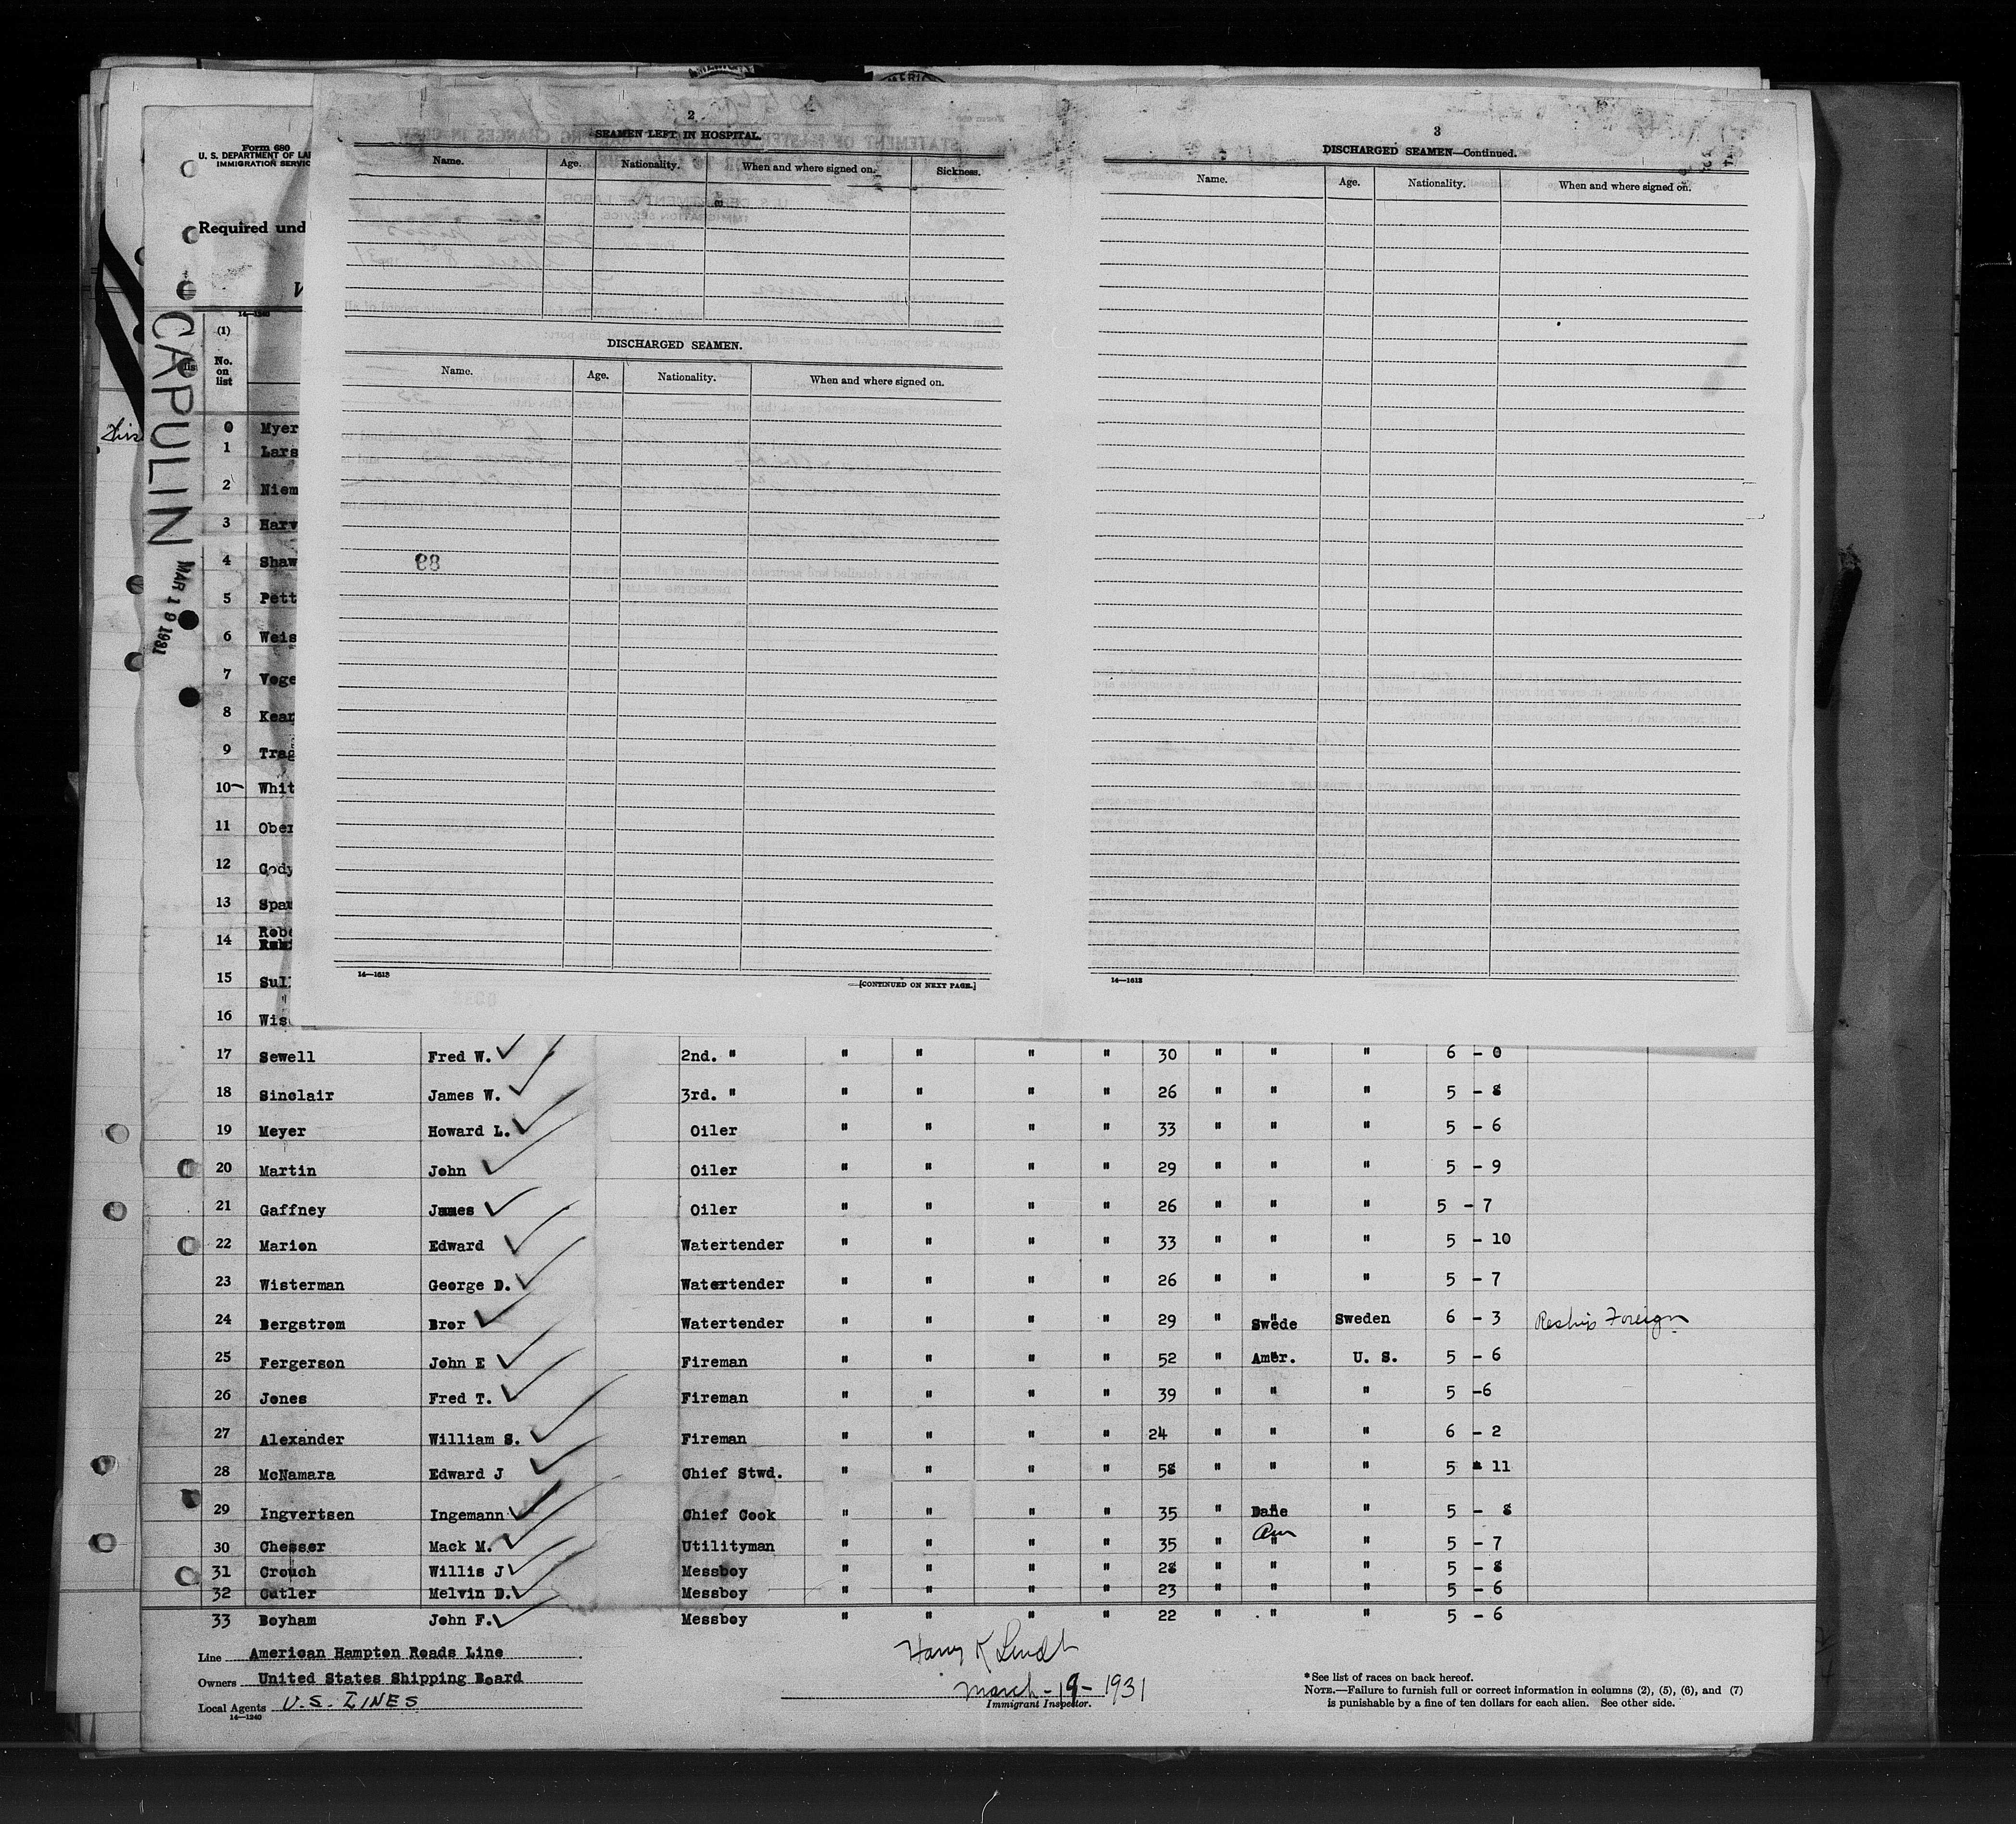 Form 680
U. S. DEPARTMENT OF LA
IMMIGRATION SERVIC
Required und
CAPULIN
MAR 19 1931
2
SEAMEN LEFT IN HOSPITAL.
Name. Age. Nationality. When and where signed on. Sickness.
DISCHARGED SEAMEN.
Name. Age. Nationality. When and where signed on.
88
14—1613
[CONTINUED ON NEXT PAGE.]
3
DISCHARGED SEAMEN—Continued.
Name. Age. Nationality. When and where signed on.
14—1613
14—1240
(1)
No. on list
0 Myer
1 Lars
2 Niem
3 Harv
4 Shaw
5 Pett
6 Weis
7 Voge
8 Kear
9 Trag
10 Whit
11 Ober
12 Cody
13 Spau
14 Robe
15 Sull
16 Wis
17 Sewell Fred W. 2nd. " " " " " 30 " " " 6 - 0
18 Sinclair James W. 3rd. " " " " " 26 " " " 5 - 8
19 Meyer Howard L. Oiler " " " " 33 " " " 5 - 6
20 Martin John Oiler " " " " 29 " " " 5 - 9
21 Gaffney James Oiler " " " " 26 " " " 5 - 7
22 Marion Edward Watertender " " " " 33 " " " 5 - 10
23 Wisterman George D. Watertender " " " " 26 " " " 5 - 7
24 Bergstrom Bror Watertender " " " " 29 " Swede Sweden 6 - 3 Reships Foreign
25 Fergerson John E Fireman " " " " 52 " Amer. U. S. 5 - 6
26 Jones Fred T. Fireman " " " " 39 " " " 5 -6
27 Alexander William S. Fireman " " " " 24 " " " 6 - 2
28 McNamara Edward J Chief Stwd. " " " " 58 " " " 5 - 11
29 Ingvertsen Ingemann Chief Cook " " " " 35 " Dane " 5 - 8
30 Chesser Mack M. Utilityman " " " " 35 " Am " 5 - 7
31 Crouch Willis J Messboy " " " " 28 " " " 5 - 8
32 Cutler Melvin D. Messboy " " " " 23 " " " 5 - 6
33 Boyham John F. Messboy " " " " 22 " " " 5 - 6
Line American Hampton Roads Line
Owners United States Shipping Board
Local Agents U.S. LINES
14—1240
Harry K
March-19-1931
Immigrant Inspector.
*See list of races on back hereof.
NOTE.—Failure to furnish full or correct information in columns (2), (5), (6), and (7)
is punishable by a fine of ten dollars for each alien. See other side.